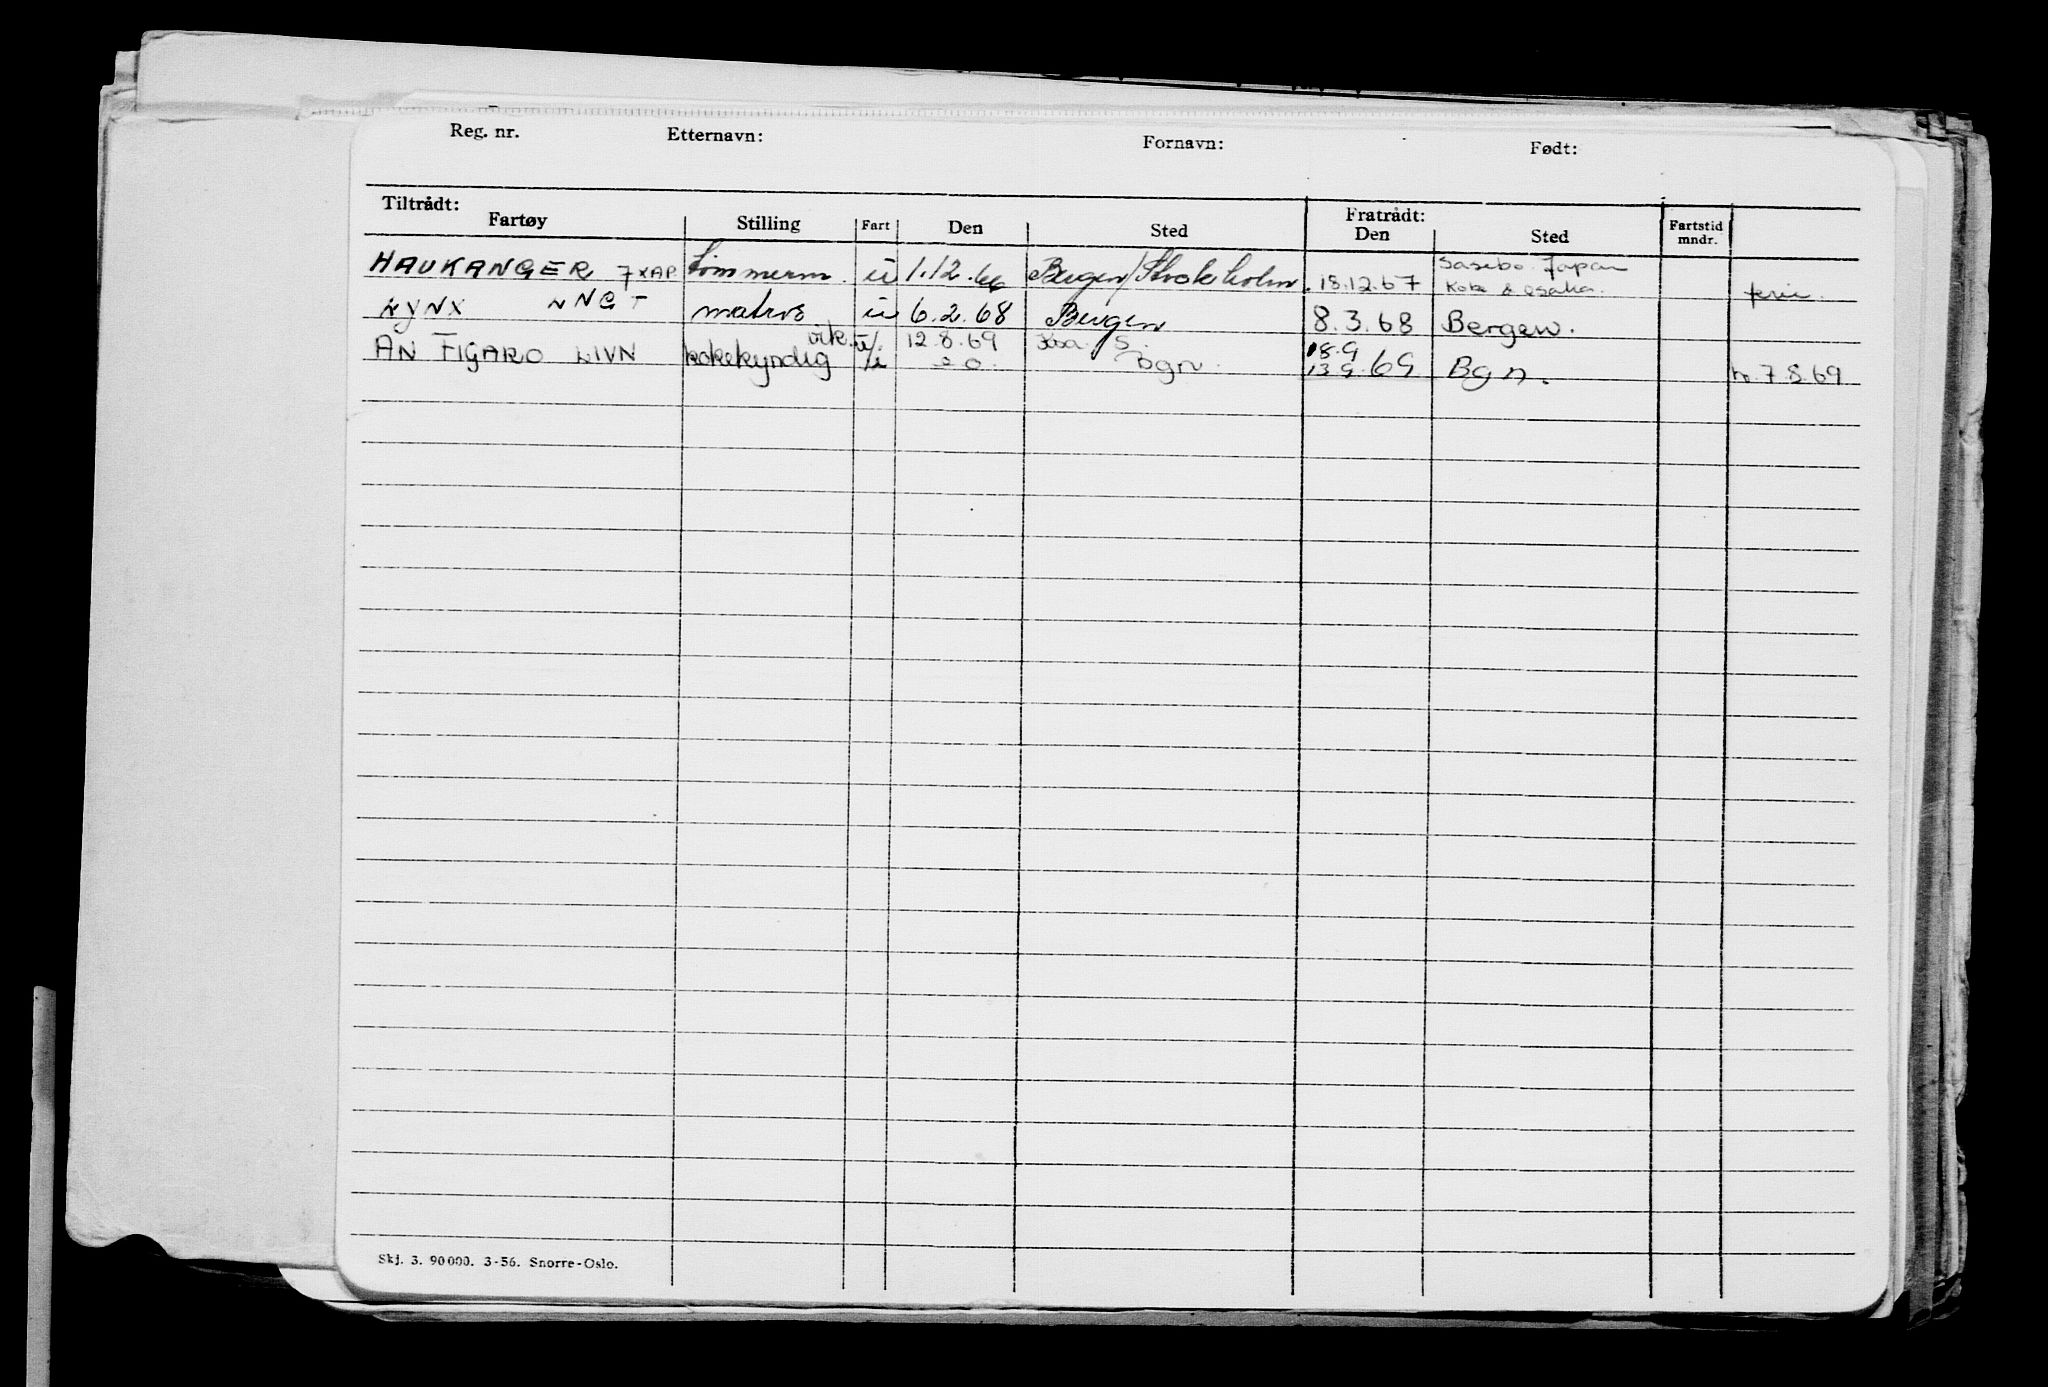 Reg. nr. Etternavn: Fornavn: Født:
Tiltrådt: Fratrådt:
Fartøy Stilling Fart Den Sted Den Sted Fartstid mndr.
HAUKANGER 7XAP. tømmerm. u 1.12.66 Bergen/Stockholm. 18.12.67 Sasebo Japan
Kobe & Osaka. ferie.
LYNX LNGT matros u 6.2.68 Bergen 8.3.68 Bergen.
vik. u/. 12.8.69 S. 18.9
AN FIGARO LIVN kokekyndig Bgn. 13 9.69 Bgn. h. 7.8.69
Skj. 3. 90 000. 3-56. Snorre-Oslo.